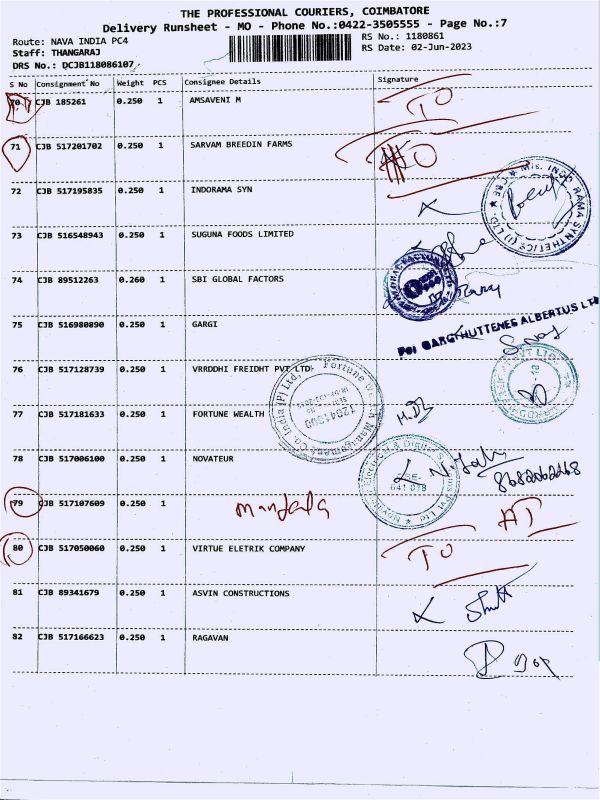 THE PROFESSIONAL COURIERS, COIMBATORE
Delivery Runsheet - MO - Phone No.:0422-3505555 - Page No.:7
Route: NAVA INDIA PC4
RS No.: 1180861
Staff: THANGARAJ
RS Date: 02-Jun-2023
DRS No.: DCJB118086107
S No Consignment No Weight PCS Consignee Details Signature
70 CJB 185261 0.250 1 AMSAVENI M TO
71 CJB 517201702 0.250 1 SARVAM BREEDIN FARMS
72 CJB 517195835 0.250 1 INDORAMA SYN
73 CJB 516548943 0.250 1 SUGUNA FOODS LIMITED
74 CJB 89512263 0.260 1 SBI GLOBAL FACTORS
75 CJB 516980890 0.250 1 GARGI
For GARGI HUTTENES ALBERTUS LTD
76 CJB 517128739 0.250 1 VRRDDHI FREIDHT PVT LTD
77 CJB 517181633 0.250 1 FORTUNE WEALTH
78 CJB 517006100 0.250 1 NOVATEUR
79 CJB 517107609 0.250 1
80 CJB 517050060 0.250 1 VIRTUE ELETRIK COMPANY TO
81 CJB 89341679 0.250 1 ASVIN CONSTRUCTIONS
82 CJB 517166623 0.250 1 RAGAVAN